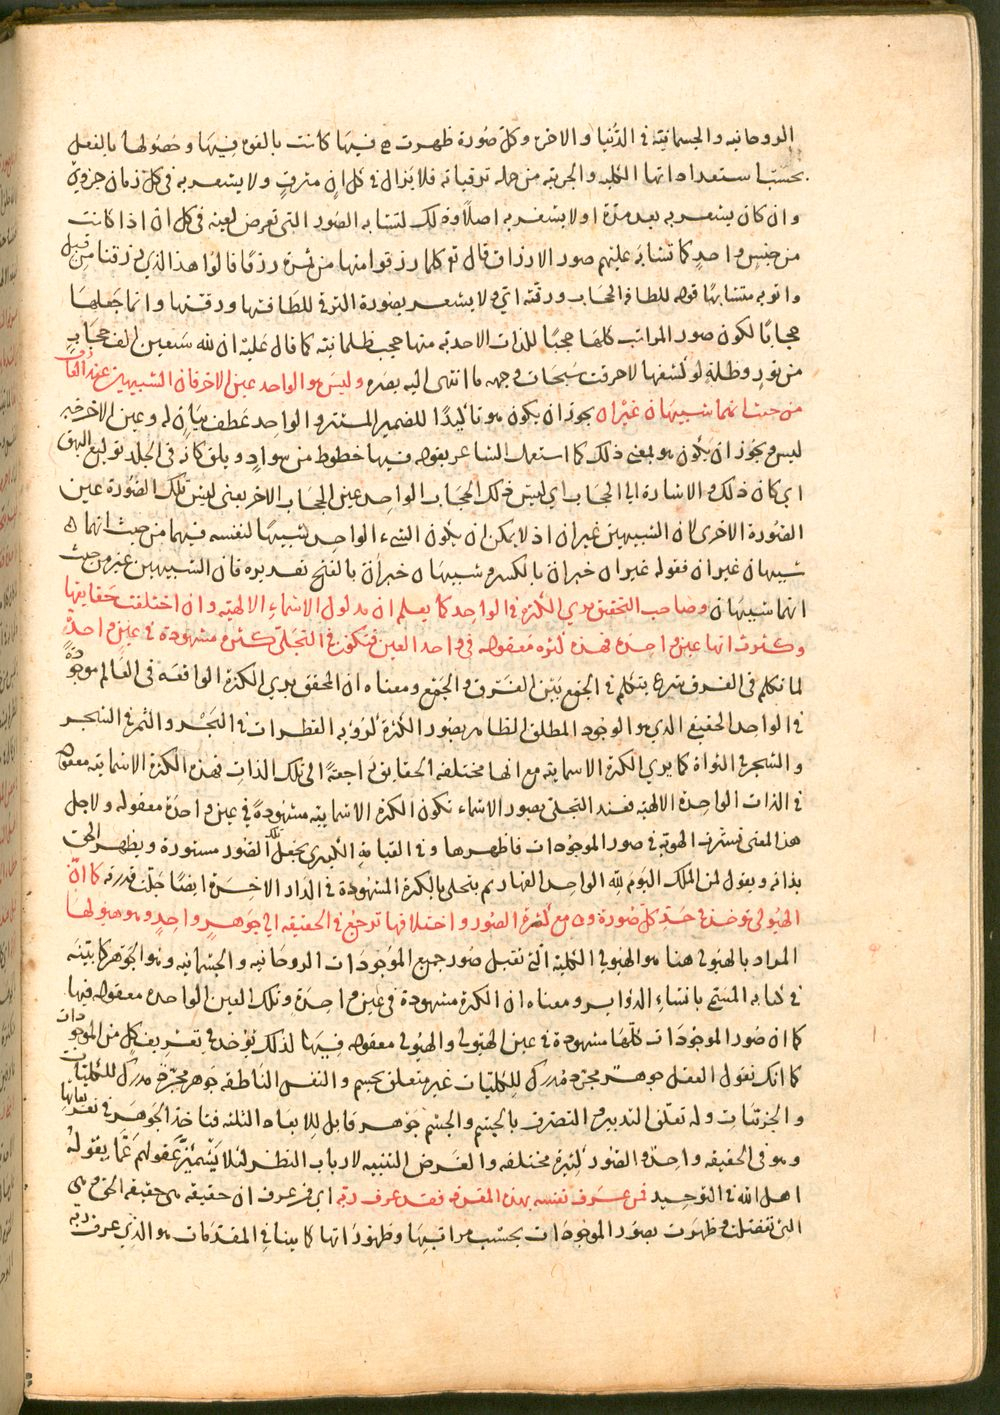 الروحانيه والجسمانيه في الدنيا والاخرة وكل صورة ظهرت فيها كانت بالقوه فيها وحصولها بالفعل
بحسب استعداداتها الكليه والجزئيه من جمله ترقياته فلا يزال في كل ان مترقيا ولا يشعر به في كل زمان جزوي
وان كان يشعر به بعد مدة او لا يشعر به اصلا وذلك لتشابه الصور التي تعرض لعينه في كل ان اذا كانت
من جنس واحد كما تشابه عليهم صور الارزاق قال تع كلما رزقوا منها من ثمرة رزقا قالوا هذا الذي رزقنا من قبل
واتوا به متشابها قوله للطافة الحجاب ورقته اي ولا يشعر بصورة الترقي للطافتها ورقتها وانما جعلها
حجابا لكون صور المراتب كلها حجبا للذات الاحديه منها حجب ظلمانيه كما قال عليه ان لله سبعين الف حجاب
من نور وظلمة لو كشفها لاحرقت سبحات وجهه ما انتهى اليه بصره وليس هو الواحد عين الاخر فان الشبيهين عند العارف
من حيث انهما شبيهان غيران يجوز ان يكون هو تاكيدا للضمير المستتر والواحد عطف بيان له وعين الاخر خبر
ليس ويجوز ان يكون هو بمعنى ذلك كما استعمل الشاعر بقوله فيها خطوط من سواد وبلق كانه في الجلد توليع البهق
اي كان ذلك والاشارة الى الحجاب اي ليس ذلك الحجاب الواحد عين الحجاب الاخر يعني ليس تلك الصورة عين
الصورة الاخرى لان الشبيهين غيران اذ لا يمكن ان يكون الشيء الواحد شبيها لنفسه فيهما من حيث انهما
شبيهان غيران فقوله غيران خبر ان بالكسر وشبيهان خبر ان بالفتح تقديره فان الشبيهين غيران من حيث
انهما شبيهان وصاحب التحقيق يرى الكثرة في الواحد كما يعلم ان مدلول الاسماء الالهيه وان اختلفت حقايقها
وكثرت انها عين واحدة فهذه كثرة معقوله في واحد العين فتكون في التجلي كثرة مشهودة في عين واحدة
لما تكلم في الفرق شرع يتكلم في الجمع بين الفرق والجمع ومعناه ان المحقق يرى الكثرة الواقعه في العالم موجودة
في الواحد الحقيقي الذي هو الوجود المطلق الظاهر بصور الكثرة كرؤيه القطرات في البحر والثمر في الشجر
والشجر في النواة كما يرى الكثرة الاسمائيه مع انها مختلفه الحقايق راجعة الى تلك الذات فهذه الكثرة الاسمائيه معقوله
في الذات الواحدة الالهيه فعند التجلي بصور الاسماء تكون الكثرة الاسمائيه مشهودة في عين واحدة معقوله ولاجل
هذا المعنى تستر الهوية في صور الموجودات فاظهرها وفي القيامة الكبرى يجعل تلك الصور مستورة ويظهر الحق
بذاته ويقول لمن الملك اليوم لله الواحد القهار ثم يتجلى بالكثرة المشهودة في الدار الاخرة ايضا جلت قدرته كما ان
الهيولى تؤخذ في حد كل صورة وهي مع كثرة الصور واختلافها ترجع في الحقيقه الى جوهر واحد وهو هيولاها
المراد بالهيولى هنا هو الهيولى الكليه التي تقبل صور جميع الموجودات الروحانيه والجسمانيه وهو الجوهر كما بينه
في كتابه المسمى بانشاء الدواير ومعناه ان الكثرة مشهودة في عين واحدة وتلك العين الواحده معقوله فيها
كما ان صور الموجودات كلها مشهودة في عين الهيولى والهيولى معقوله فيها لذلك تؤخذ في تعريف كل من الموجودات
كما انك تقول العقل جوهر مجرد مدرك للكليات غير متعلق بجسم والنفس الناطقه جوهر مجرد مدرك للكليات
والجزئيات وله تعلق التدبير والتصرف بالجسم والجسم جوهر قابل للابعاد الثلثه فتاخذ الجوهر في تعريفاتها
وهو في الحقيقه واحد والصور كثيرة مختلفه والغرض التنبيه لارباب النظر لئلا يشمئز عقولهم عما يقوله
اهل الله في التوحيد فمن عرف نفسه بهذه المعرفه فقد عرف ربه اي فمن عرف ان حقيقته هي حقيقة الحق وهي
التي تفصلت وظهرت بصور الموجودات بحسب مراتبها وظهوراتها كما بينا في المقدمات هو الذي عرف ربه